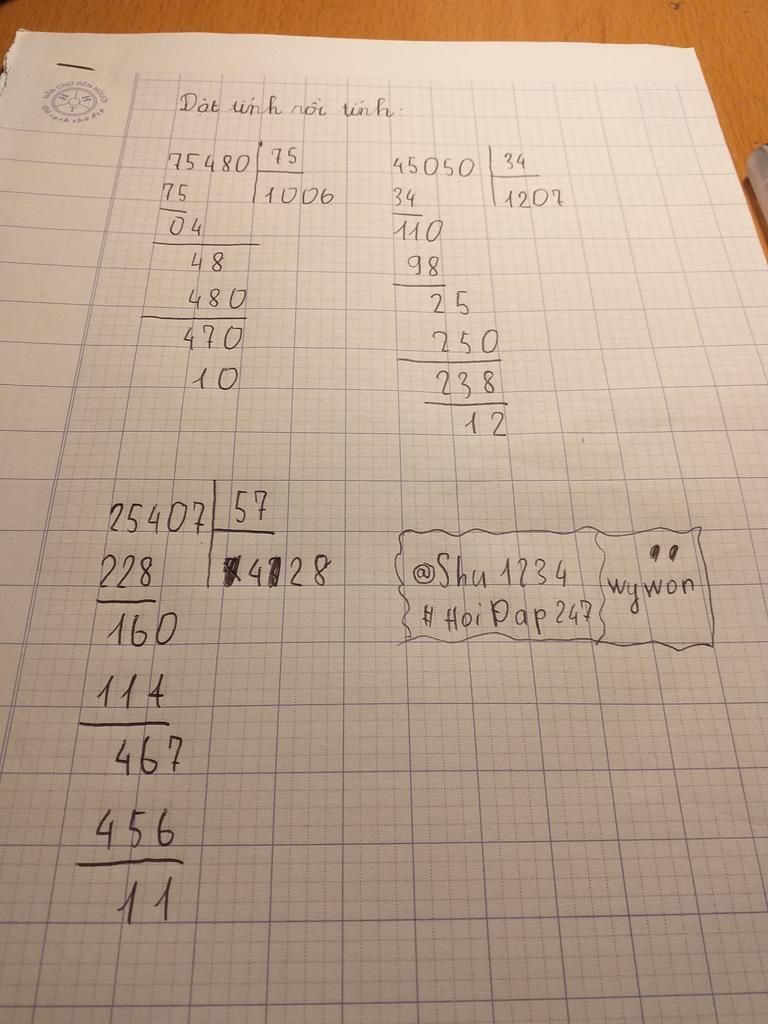 Dặt tính rồi tính.
75480 75
75 1006
04
48
480
470
10
45050 34
34 1207
110
98
25
250
238
12
25407 57
228 4 28
160
114
467
456
11
@Shu1234
#HoiDap247
wywon